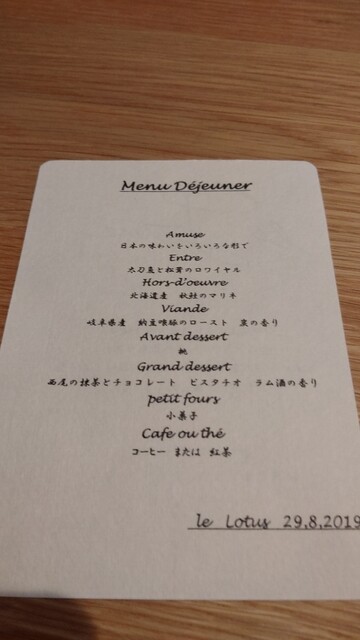 Menu Déjeuner
Amuse
日本の味わいをいろいろな形で
Entre
太刀魚と松茸のロワイヤル
Hors-d'oeuvre
北海道産 秋鮭のマリネ
Viande
岐阜県産 納豆喰豚のロースト 炭の香り
Avant dessert
桃
Grand dessert
西尾の抹茶とチョコレート ピスタチオ ラム酒の香り
petit fours
小菓子
Cafe ou thé
コーヒー または 紅茶
le Lotus 29,8,2019